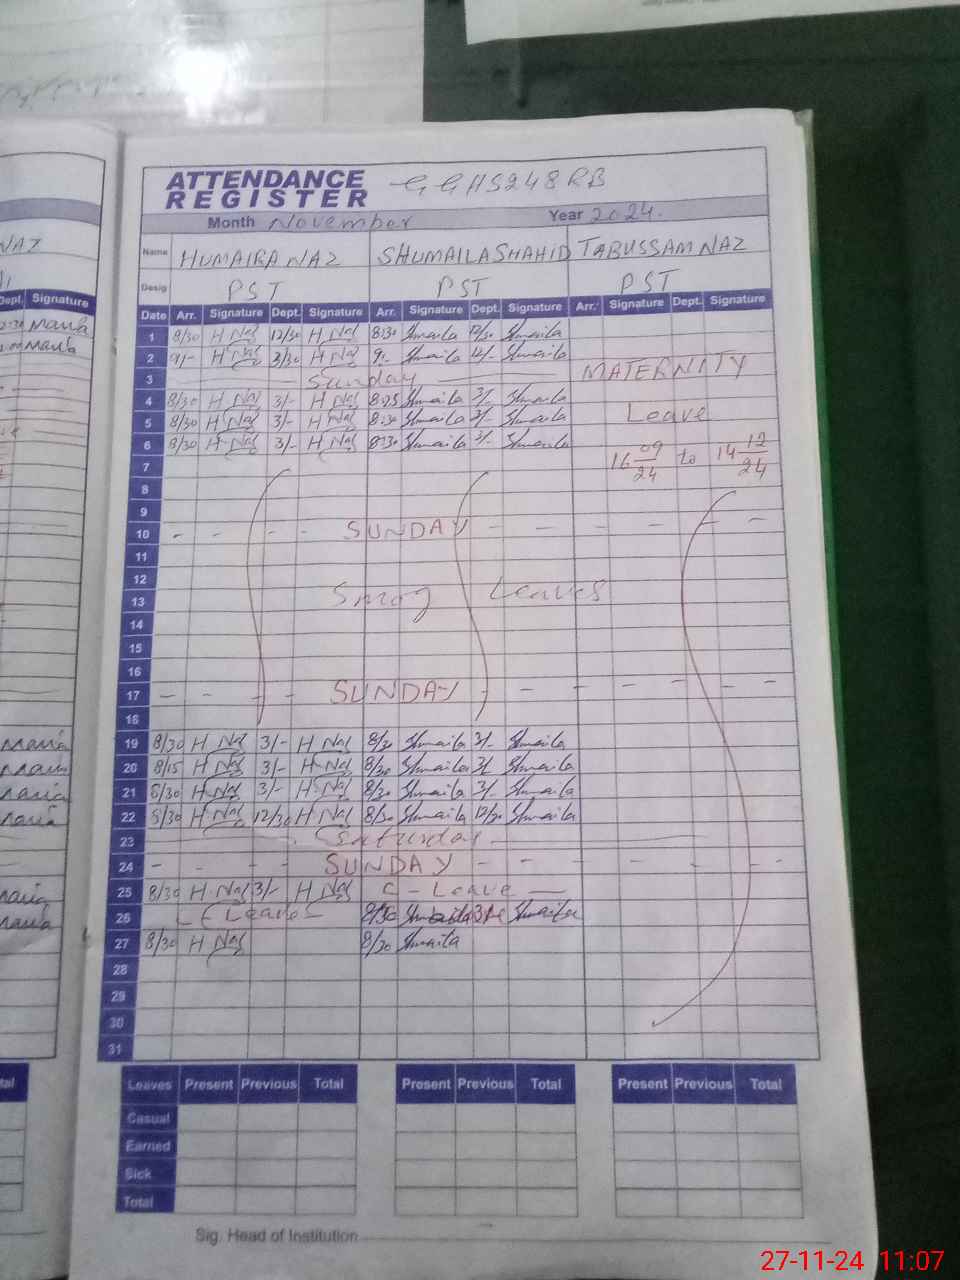 ATTENDANCE REGISTER GGHS248RB
Month November Year 2024.
Name HUMAIRA NAZ SHUMAILA SHAHID TABUSSAM NAZ
Desig PST PST PST
Date Arr. Signature Dept. Signature Arr. Signature Dept. Signature Arr. Signature Dept. Signature
1 8/30 H Naz 12/30 H Naz 8:30 Shmaila 12/30 Shmaila
2 9/- H Naz 3/30 H Naz 9:- Shmaila Shmaila
3 Sunday MATERNITY
4 8/30 H Naz 3/- H Naz 8:25 Shmaila 3/- Shmaila
5 8/30 H Naz 3/- H Naz 8:30 Shmaila 3/- Shmaila Leave
6 8/30 H Naz 3/- H Naz 8:30 Shmaila 3/- Shmaila
7 16 09/24 to 14 12/24
8
9
10 - - - - SUNDAY - - - - - -
11
12
13 Smog Leaves
14
15
16
17 - - - - SUNDAY - - - - - - -
18
19 8/30 H Naz 3/- H Naz 8/30 Shmaila 3/- Shmaila
20 8/15 H Naz 3/- H Naz 8/30 Shmaila 3/- Shmaila
21 8/30 H Naz 3/- H Naz 8/30 Shmaila 3/- Shmaila
22 8/30 H Naz 12/30 H Naz 8/30 Shmaila 12/30 Shmaila
23 Saturday
24 - - - SUNDAY - - - - - - - -
25 8/30 H Naz 3/- H Naz C - Leave -
26 Leave 8/30 Shmaila Shmaila
27 8/30 H Naz 8/30 Shmaila
28
29
30
31
Leaves Present Previous Total Present Previous Total Present Previous Total
Casual
Earned
Sick
Total
Sig. Head of Institution
NAZ
Dept. Signature
Maria
Maria
Maria
Maria
Maria
Maria
Maria
Maria
27-11-24 11:07